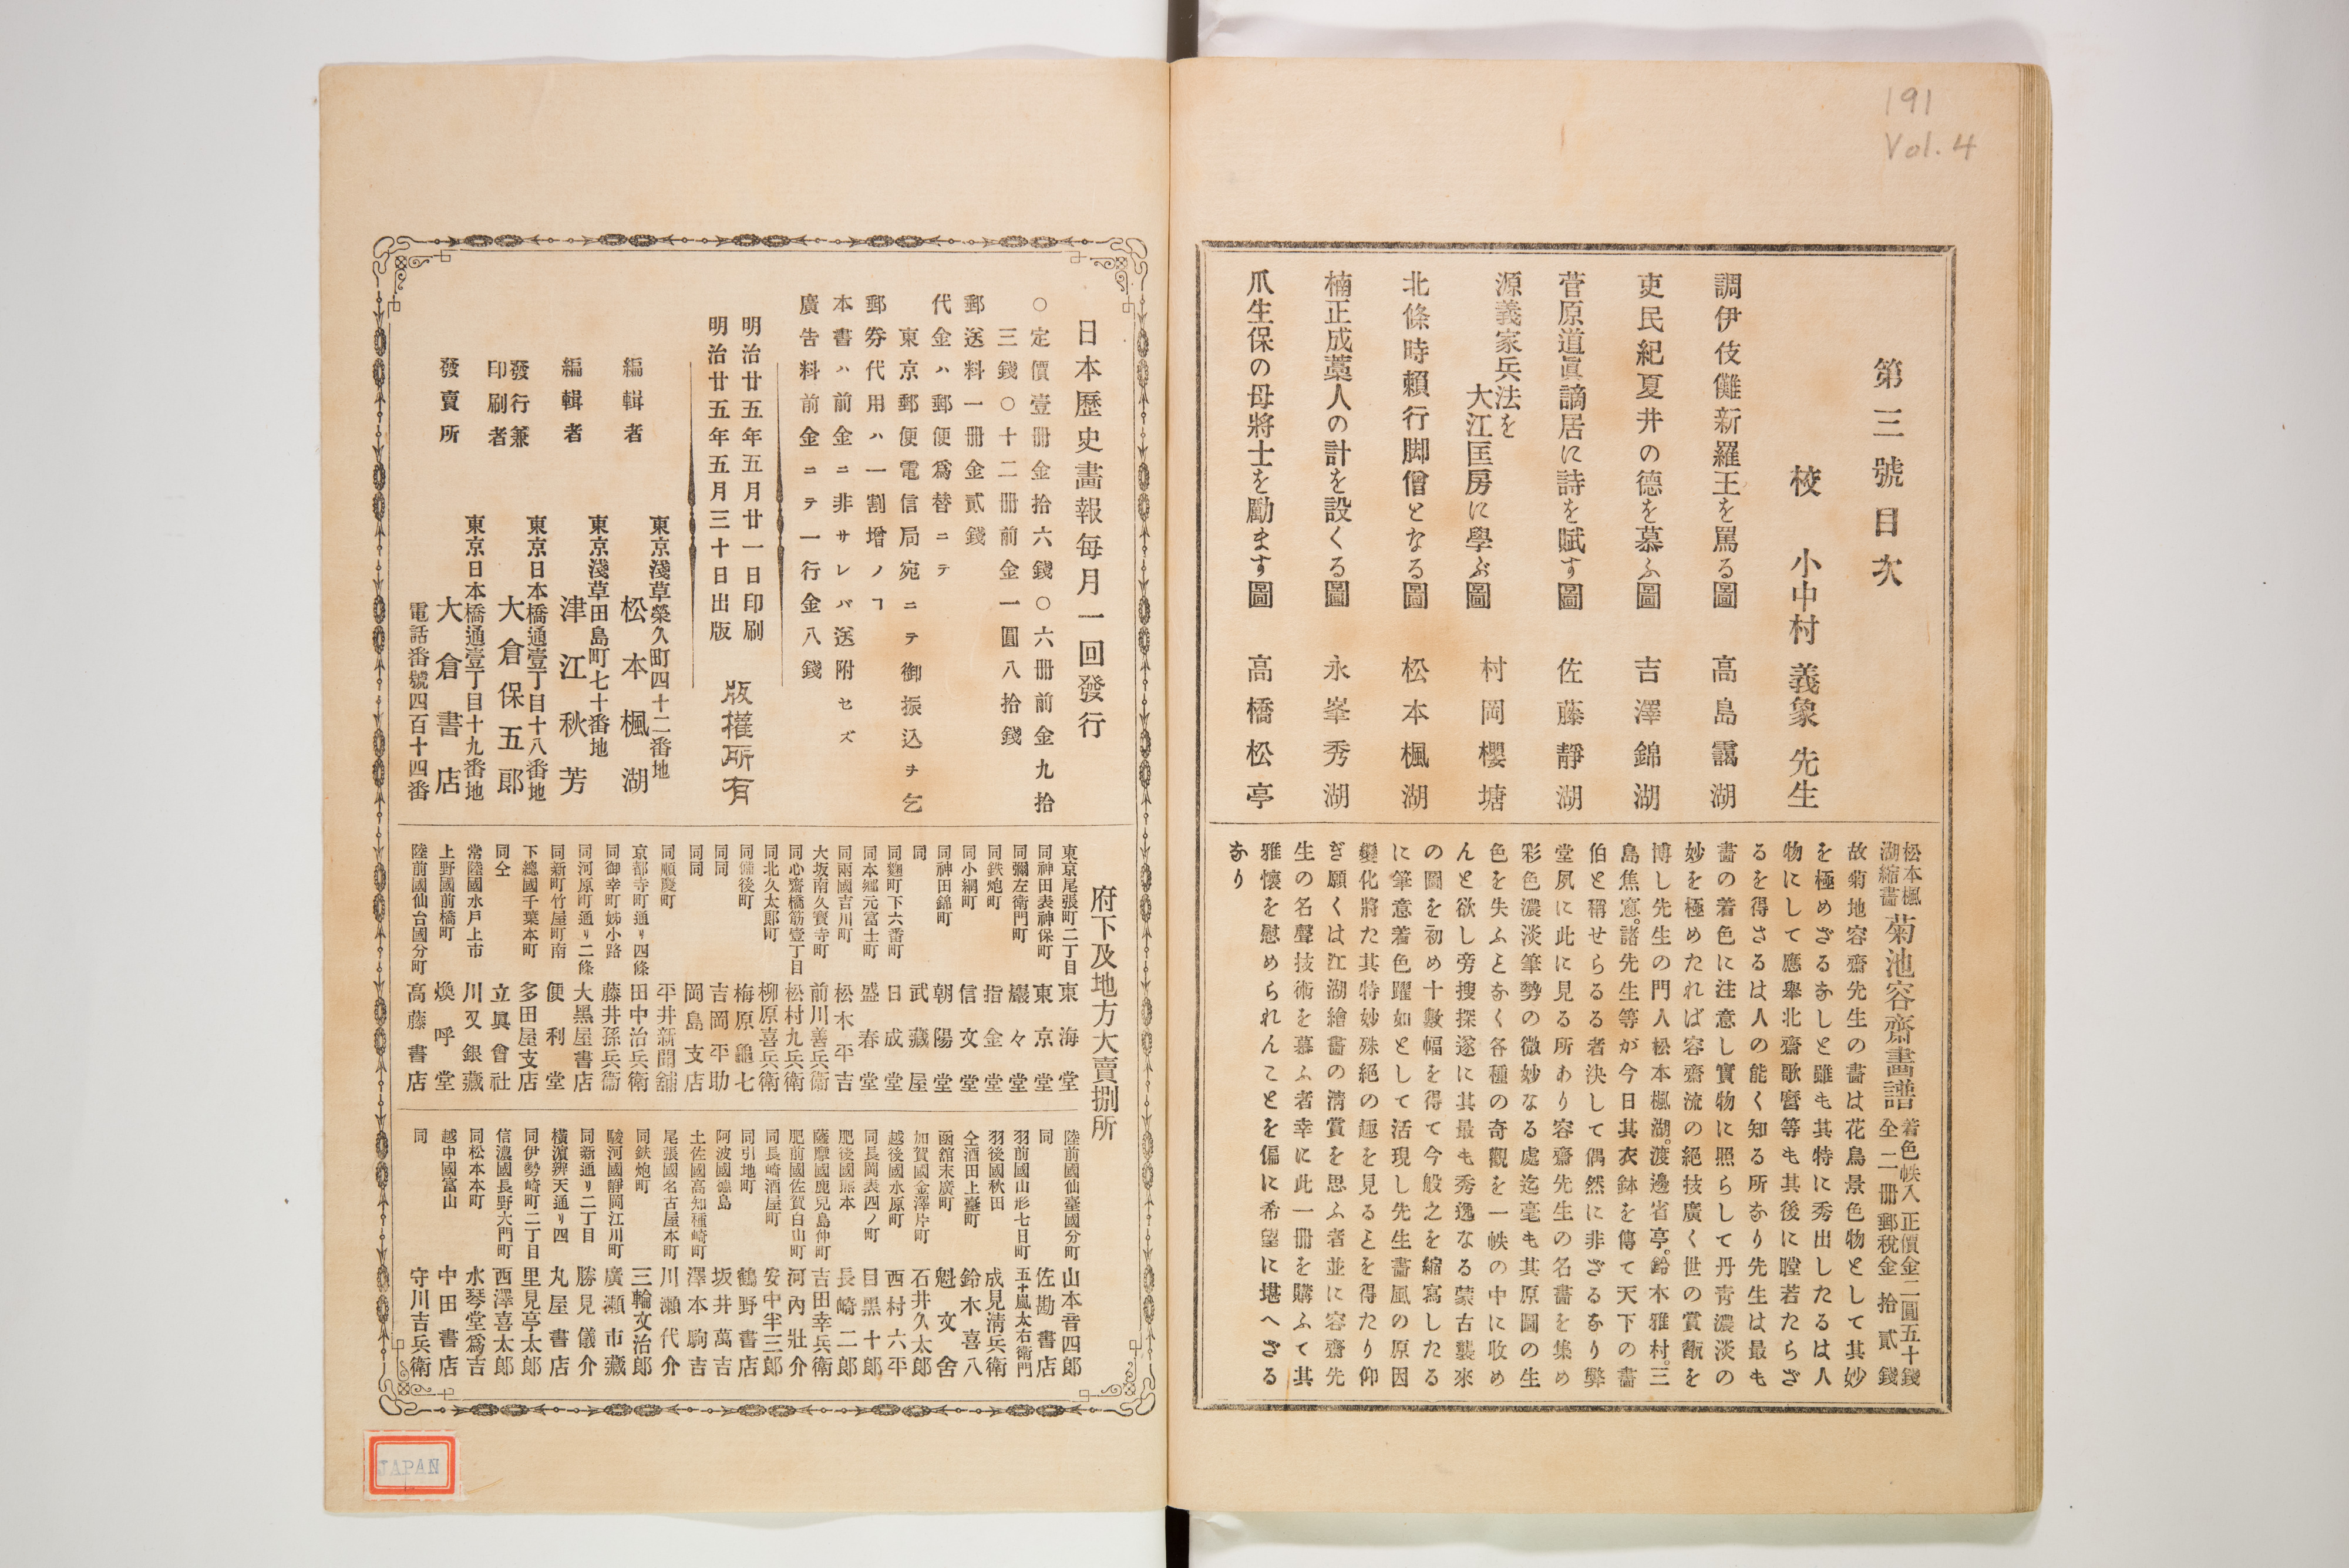 191
Vol. 4
第三號目次
校 小中村義象先生
調伊伎儺新羅王を罵る圖 高島靄湖
吏民紀夏井の德を慕ふ圖 吉澤錦湖
菅原道眞謫居に詩を賦す圖 佐藤靜湖
源義家兵法を
大江匡房に學ぶ圖 村岡櫻塘
北條時賴行脚僧となる圖 松本楓湖
楠正成藁人の計を設くる圖 永峯秀湖
爪生保の母將士を勵ます圖 高橋松亭
松本楓湖縮畫 菊池容齋畫譜 着色帙入全二冊 正價金二圓五十錢 郵稅金拾貳錢
故菊地容齋先生の畵は花鳥景色物として其妙
を極めざるなしと雖も其特に秀出したるは人
物にして應擧北齋歌麿等も其後に瞠若たらざ
るを得さるは人の能く知る所なり先生は最も
畵の着色に注意し實物に照らして丹青濃淡の
妙を極めたれば容齋流の絕技廣く世の賞翫を
博し先生の門人松本楓湖。渡邊省亭。鈴木雅村。三
島焦窓。諸先生等が今日其衣鉢を傳て天下の畵
伯と稱せらるる者決して偶然に非ざるなり弊
堂夙に此に見る所あり容齋先生の名畵を集め
彩色濃淡筆勢の微妙なる處迄毫も其原圖の生
色を失ふとなく各種の奇觀を一帙の中に收め
んと欲し旁搜探遂に其最も秀逸なる蒙古襲來
の圖を初め十數幅を得て今般之を縮寫したる
に筆意着色躍如として活現し先生畵風の原因
變化將た其特妙殊絕の趣を見るとを得たり仰
ぎ願くは江湖繪畵の淸賞を思ふ者並に容齋先
生の名聲技術を慕ふ者幸に此一冊を購ふて其
雅懷を慰められんことを偏に希望に堪へざる
なり
日本歷史畵報每月一回發行
○定價壹冊金拾六錢○六冊前金九拾
三錢○十二冊前金一圓八拾錢
郵送料一冊金貳錢
代金ハ郵便爲替ニテ
東京郵便電信局宛ニテ御振込ヲ乞
郵券代用ハ一割增ノヿ
本書ハ前金ニ非サレバ送附セズ
廣告料前金ニテ一行金八錢
明治廿五年五月廿一日印刷
明治廿五年五月三十日出版
版權所有
東京淺草榮久町四十二番地
編輯者 松本楓湖
東京淺草田島町七十番地
編輯者 津江秋芳
東京日本橋通壹丁目十八番地
發行兼印刷者 大倉保五郎
東京日本橋通壹丁目十九番地
發賣所 大倉書店
電話番號四百十四番
府下及地方大賣捌所
東京尾張町二丁目 東海堂
同神田表神保町 東京堂
同彌左衛門町 巖々堂
同鉄炮町 指金堂
同小網町 信文堂
同神田錦町 朝陽堂
同 武藏屋
同麹町下六番町 日成堂
同本鄕元富士町 盛春堂
同兩國吉川町 松木平吉
大坂南久寳寺町 前川善兵衞
同心齋橋筋壹丁目 松村九兵衛
同北久太郞町 柳原喜兵衛
同備後町 梅原龜七
同同 吉岡平助
同同 岡島支店
同順慶町 平井新聞舖
京都寺町通り四條 田中治兵衛
同御幸町姊小路 藤井孫兵衞
同河原町通り二條 大黑屋書店
同新町竹屋町南 便利堂
下總國千葉本町 多田屋支店
同仝 立眞會社
常陸國水戶上市 川又銀藏
上野國前橋町 煥呼堂
陸前國仙台國分町 高藤書店
陸前國仙臺國分町 山本音四郎
同 佐勘書店
羽前國山形七日町 五十嵐太右衛門
羽後國秋田 成見淸兵衛
仝酒田上臺町 鈴木喜八
函舘末廣町 魁文舍
加賀國金澤片町 石井久太郎
越後國水原町 西村六平
同長岡表四ノ町 目黑十郎
肥後國熊本 長崎二郎
薩摩國鹿兒島仲町 吉田幸兵衛
肥前國佐賀白山町 河內壯介
同長崎酒屋町 安中半三郎
同引地町 鶴野書店
阿波國德島 坂井萬吉
土佐國高知種崎町 澤本駒吉
尾張國名古屋本町 川瀨代介
同鉄炮町 三輪文治郎
駿河國靜岡江川町 廣瀨市藏
同新通り二丁目 勝見儀介
橫濱辨天通り四 丸屋書店
同伊勢崎町二丁目 里見亭太郎
信濃國長野大門町 西澤喜太郎
同松本本町 水琴堂爲吉
越中國富山 中田書店
同 守川吉兵衛
JAPAN